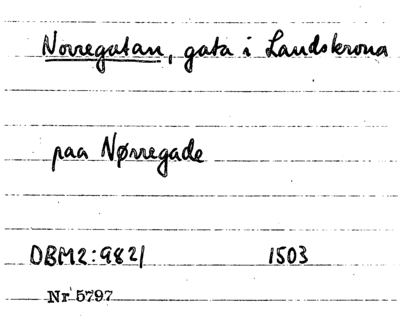 Norregatan, gata i Landskrona
paa Nørregade
DBM2:982/ 1503
Nr 5797